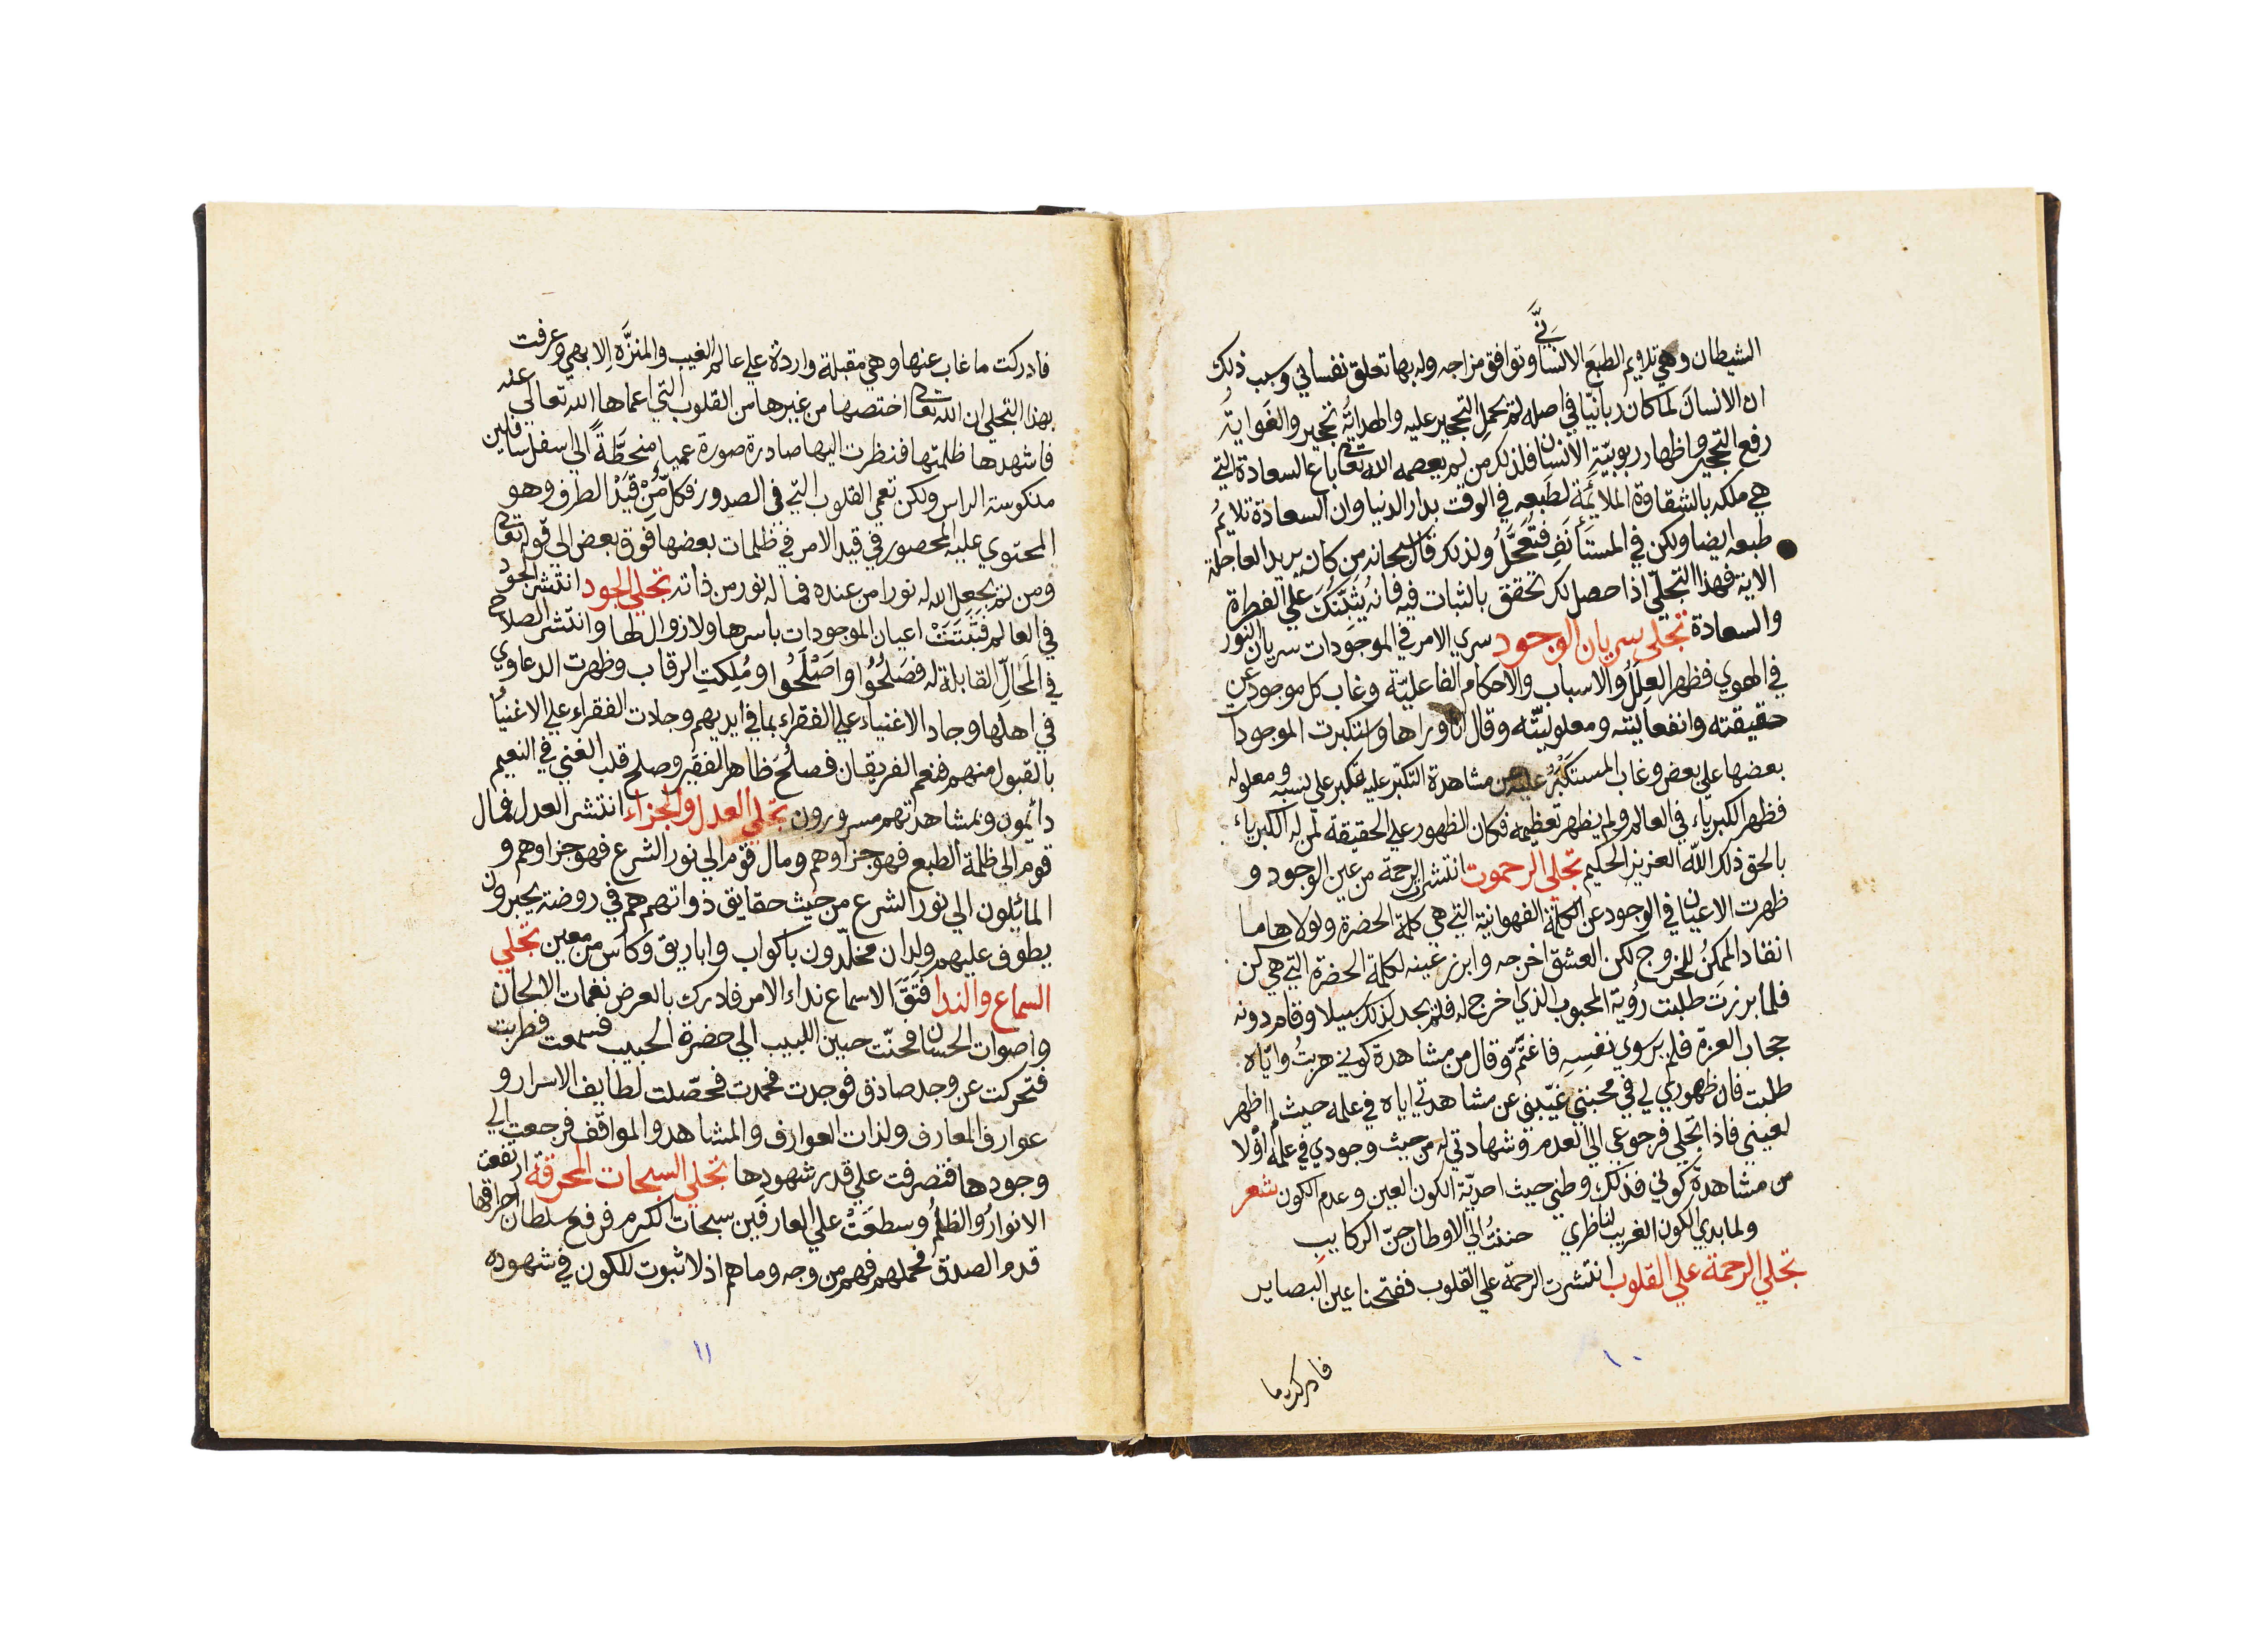 الشيطان وهي تلايم الطبع الانساني وتوافق مزاجه وله بها تعلق نفساني وسبب ذلك
ان الانسان لما كان ربانيّا في اصله لم يحمل التحجير عليه والهداية تحجير والغواية
رفع التحجير واظهار ربوبيّة الانسان فلذلك من لم يعصمه الله تعالى باع السعادة التي
هي ملكه بالشقاوة الملايمة لطبعه في الوقت بدار الدنيا وان السعادة تلايمُ
طبعه ايضا ولكن في المستأنَف فتُعجَّلُ ولذلك قال سبحانه من كان يريد العاجلة
الاية فهذا التجلّي اذا حصل لك تحقق بالثبات فيه فانه يُثبتك علي الفطرة
والسعادة تجلي سريان الوجود سري الامر في الموجودات سريان النور
في الهوي فظهر العِلَلُ والاسباب والاحكام الفاعليّة وغاب كل موجود عن
حقيقته وانفعاليته ومعلوليّته وقال انا وراها واستكبرت الموجودات
بعضها على بعض وغاب المستكبَر عليه عن مشاهدة التكبّر عليه تكبر علي نسبه ومعلوله
فظهر الكبرياء في العالم ولم يظهر تعظيمه فكان الظهور علي الحقيقة لمن له الكبرياء
بالحق ذلك الله العزيز الحكيم تجلي الرحموت انتشرت الرحمة من عين الوجود و
ظهرت الاعيان في الوجود عن الكلمة الفهوانية التي هي كلمة الحضرة ولولاها ما
انقاد الممكنُ للخروج لكن العشق اخرجه وابرز عينه لكلمة الحضرة التي هي كن
فلما برزتَ طلبت رؤية المحبوب الذي اخرج له فلم يجد لذلك سبيلا وقام دونه
حجاب العزة فلم ير سوي نفسِه فاغتمّ وقال من مشاهدة كوني هربتُ وايّاه
طلبت فان ظهوري لي في محبتي غيّبني عن مشاهدتي اياه في علمه حيث لم اظهر
لعيني فاذا تجلي فرجوعي الي العدم وشهادتي له من حيث وجودي في علمه اوْلا
من مشاهدة كوني فذلك وطني حيث احديّة الكون العين وعدم الكون شعر
ولما بدي الكون الغريب لناظري حننتُ الي الاوطان حنّ الركايبِ
تجلي الرحمة علي القلوب انتشرت الرحمة علي القلوب ففتحنا عين البصاير
فادركت ما
١٠
فادركت ما غاب عنها وهي مقبلة واردة علي عالم الغيب والمنزَّه الابهي وعرفت
بهذا التجلي ان الله تعالى اختصها من غيرها من القلوب التي اعماها الله تعالي عنه
فاشهدها ظلمتها فنظرت اليها صادرة صورة عمياء منحطّةً الي اسفل سافلين
منكوسة الراس ولكن تعمي القلوب التي في الصدور فكل مَن قيَّد الطرف وهو
المحتوي عليه المحصور في قيد الامر في ظلمات بعضها فوق بعض الي قوله تعالى
ومن لم يجعل الله له نورا من عنده فما له نور من ذاته تجلي الجود انتشر الجود
في العالم فثبتَتْ اعيان الموجودات باسرها ولا زوال لها وانتشر الصلاح
في المَحالِّ القابلة له فصَلَحُوا واصْلَحُوا ومُلِكتِ الرقاب وظهرت الدعاوي
في اهلها وجاد الاغنياء علي الفقراء بما في ايديهم وجادت الفقراء علي الاغنياء
بالقبول منهم فنعم الفريقان فصلَحَ ظاهر الفقير وصلح قلب الغني في النعيم
دائمون وبمشاهدتهم مسرورون تجلي العدل والجزاء انتشر العدل فمال
قوم الي ظلمة الطبع فهو جزاوهم ومال قوم الي نور الشرع فهو جزاوهم و
المائلون الي نور الشرع من حيث حقايق ذواتهم هم في روضة يحبرون
يطوف عليهم ولدان مخلّدون باكواب واباريق وكاس من معين تجلي
السماع والندا فَتَقَ الاسماع نداء الامر فادرك بالعرض نغمات الالحان
واصوات الحسان فحنّت حنين اللبيب الي حضرة الحبيب فسمعت فطربت
فتحركت عن وجد صادق فوجدت فحمدت فحصّلت لطايف الاسرار و
عوارف المعارف ولذات العوارف والمشاهد والمواقف فرجعت الي
وجودها فتصرفت علي قدر شهودها تجلي السبحات المحرقة ارتفعت
الانوارُ والظلمُ وسطعَتْ علي العارفين سبحات الكرم فرفع سلطان احراقها
قدم الصدق فحملهم فهم من وجه وما هم اذ لا ثبوت للكون في شهوده
١١